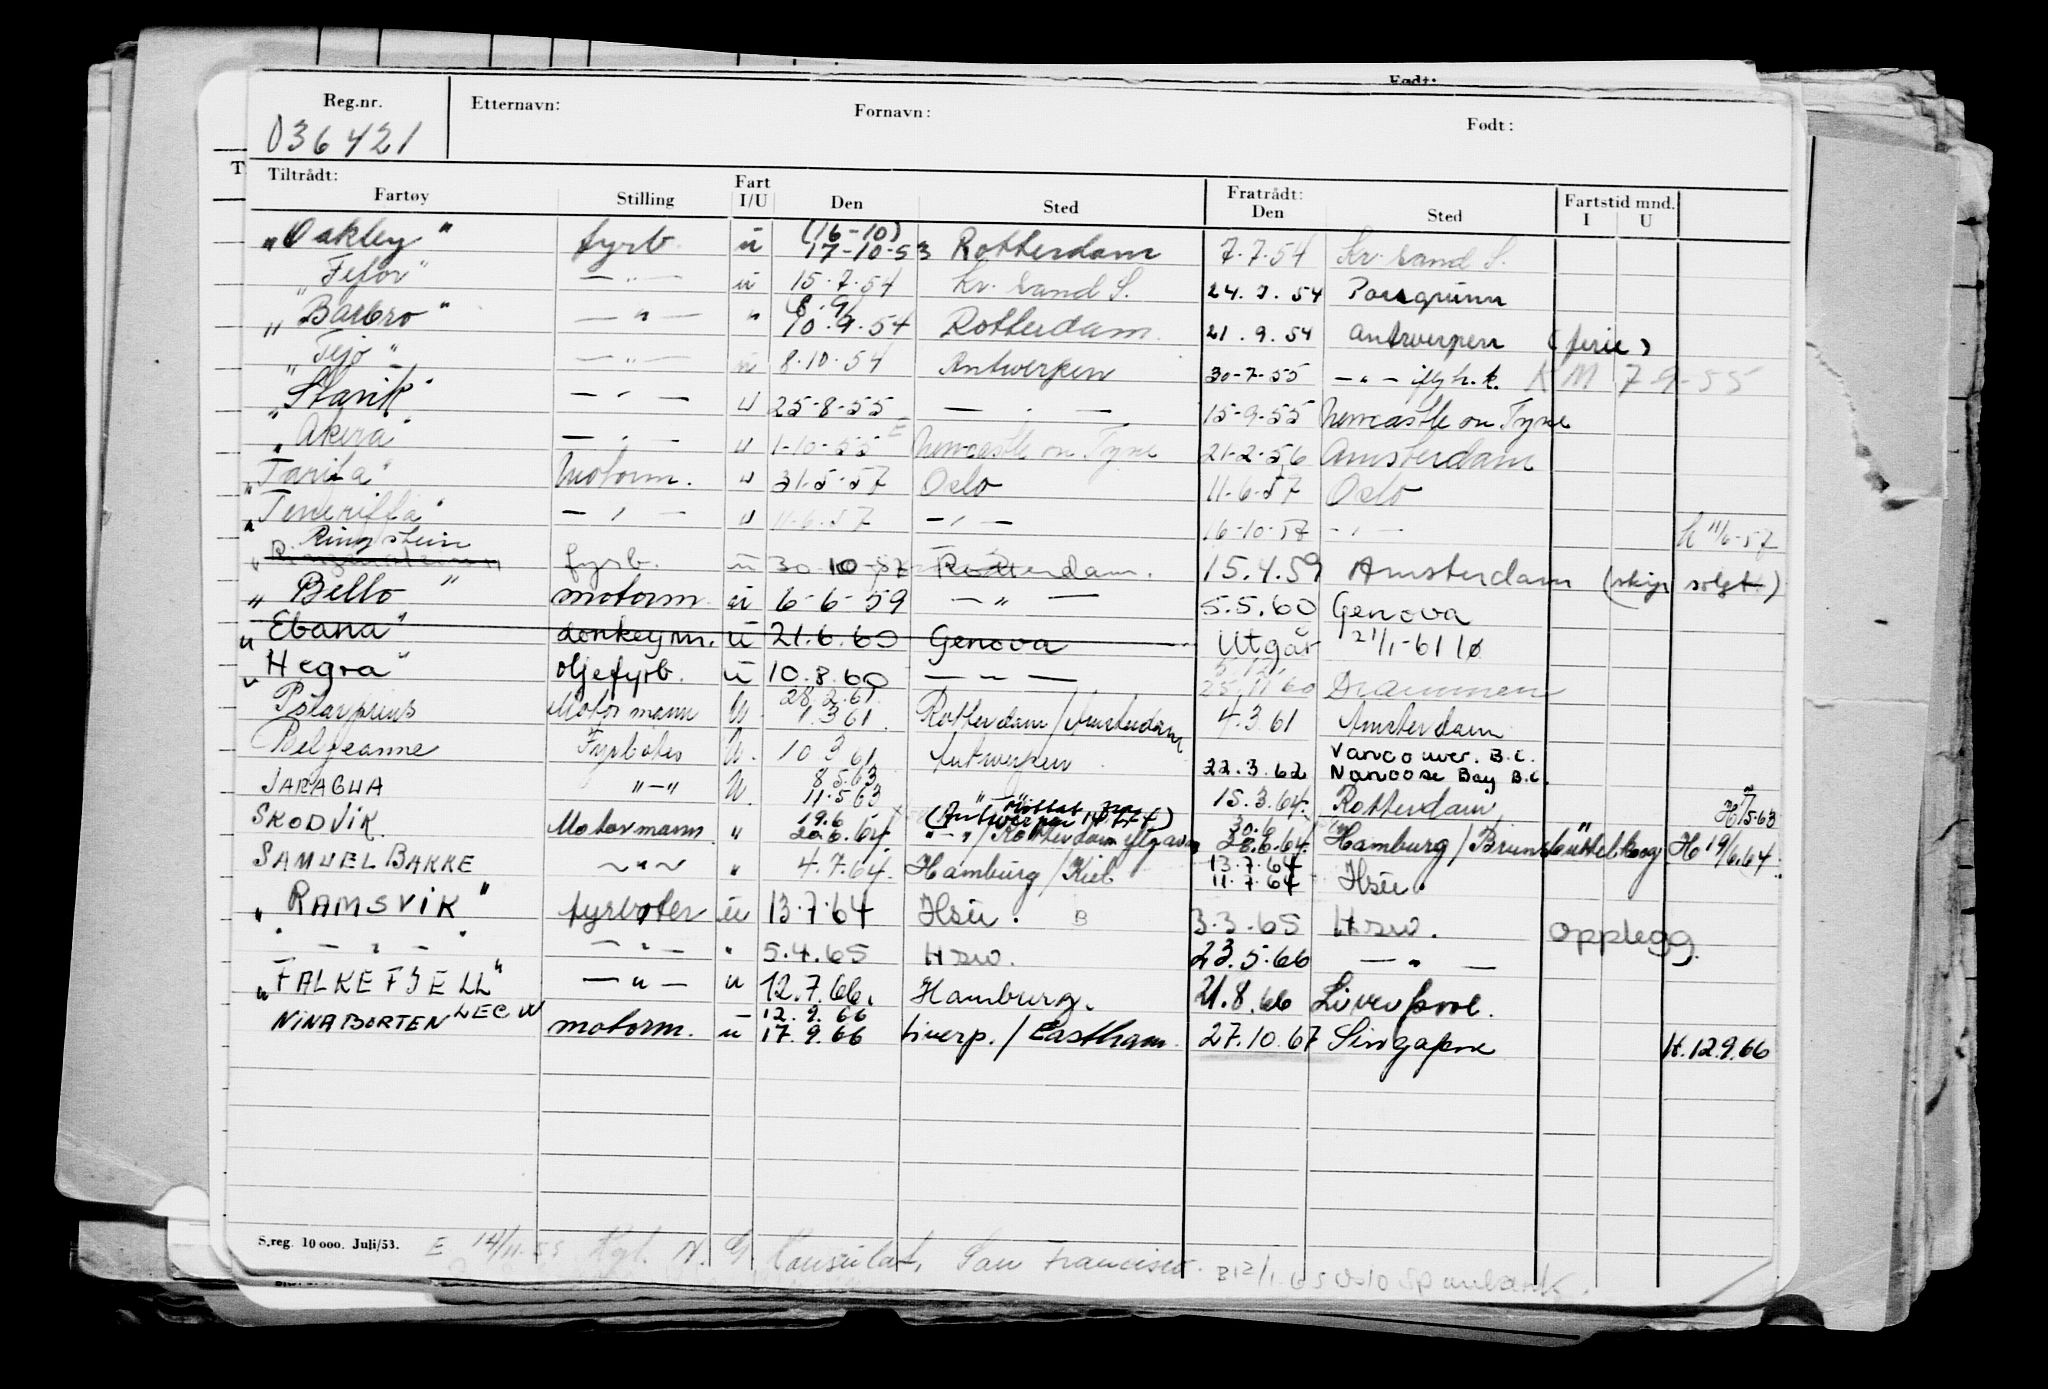 Født:
Reg.nr. Etternavn: Fornavn: Født:
036421
T
Tiltrådt: Fart Fratrådt: Fartstid mnd.
Fartøy Stilling I/U Den Sted Den Sted I U
(16-10)
"Oakley" fyrb. ü 17-10-53 Rotterdam 7.7.54 Kr.sand S.
"Fefor" — " — ü 15.7.54 Kr.sand S. 24.7.54 Porsgrunn
8.9
"Barbro" — " — " 10.9.54 Rotterdam 21.9.54 Antwerpen (ferie)
"Tejo" — " — ü 8.10.54 Antwerpen 30-7-55 — " — KM 7 9-55
"Starik" — " — u 25-8-55 — " — 15-9-55 Newcastle on Tyne
"Akera" — " — u 1-10-55 E Newcastle on Tyne 21-2-56 Amsterdam
"Tarifa" Motorm. u 31-5-57 Oslo 11-6-57 Oslo
"Teneriffa" — " — u 11-6-57 — " — 16-10-57 — " — h 11/6-57
Ringstein
" fyrb. ü 30 10-57 Rotterdam. 15.4.59 Amsterdam (skip solgt)
"Bello" motorm. ü 6-6-59 — " — 5.5.60 Genova
"Ebana" donkeym. ü 21.6.60 Genova Utgår 21/1-61 lø
"Hegra" oljefyrb. ü 10.8.60 — " — 25.11 60 Drammen
28.2.61
Polarprins Motormann U. 1.3 61. Rotterdam/Amsterdam 4.3.61 Amsterdam
Vancouver. B.C.
Beljeanne Fyrbøter U. 10 3 61 Antwerpen 22.3.62 Nanoose Bay B.C.
8.5.63
JARAGUA "—" U. 11.5 63 " 15.3.64. Rotterdam H 11/5.63
19.6 30.6
SKODVIK. Motormann. " 20.6.64. "—"/Rotterdam 28.6.64. Hamburg/Brunsbüttelkoog H 19/6.64.
13.7.64
SAMUEL BAKKE ~"~ " 4.7.64. Hamburg/Kiel 11.7.64 Hsü.
"RAMSVIK" fyrbøter ü 13.7.64 Hsü. B 3.3.65 Hsw. Opplegg.
" — " — " — " — " 5.4.65 Hsw. 23.5.66 — " —
"FALKEFJELL" — " — u 12.7.66. Hamburg. 21.8.66 Liverpool.
12.9.66
NINA BORTEN motorm. u 17.9.66 Liverp./Eastham. 27.10.67 Singapore H.12.9.66
S.reg. 10 000. Juli/53. E 14/11-55 Kgl. N. G. Konsulat, San Francisco.